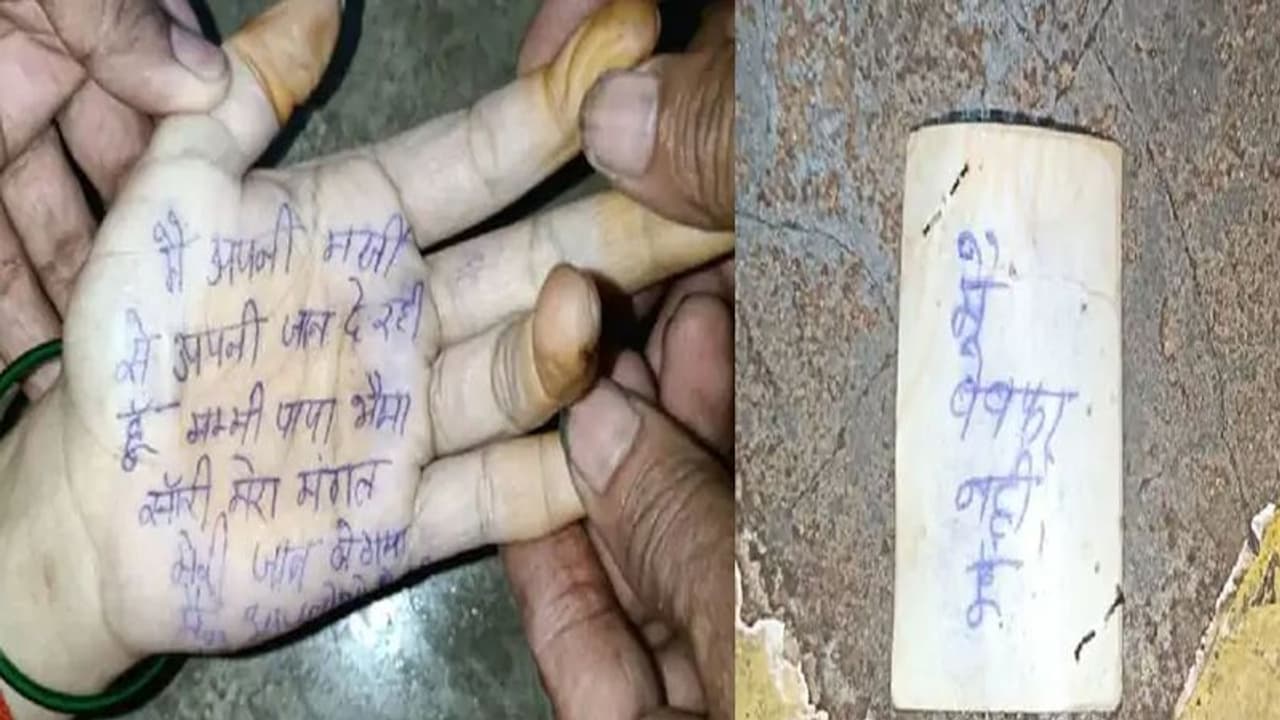 मैं अपनी मर्जी
से अपनी जान दे रही
हूँ मम्मी पापा भैया
सॉरी, मेरा मंगल
मेरी जान ले गया
बेवफा
नहीं